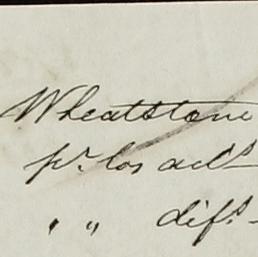 Wheatstone
pr. los adls
" " difs.